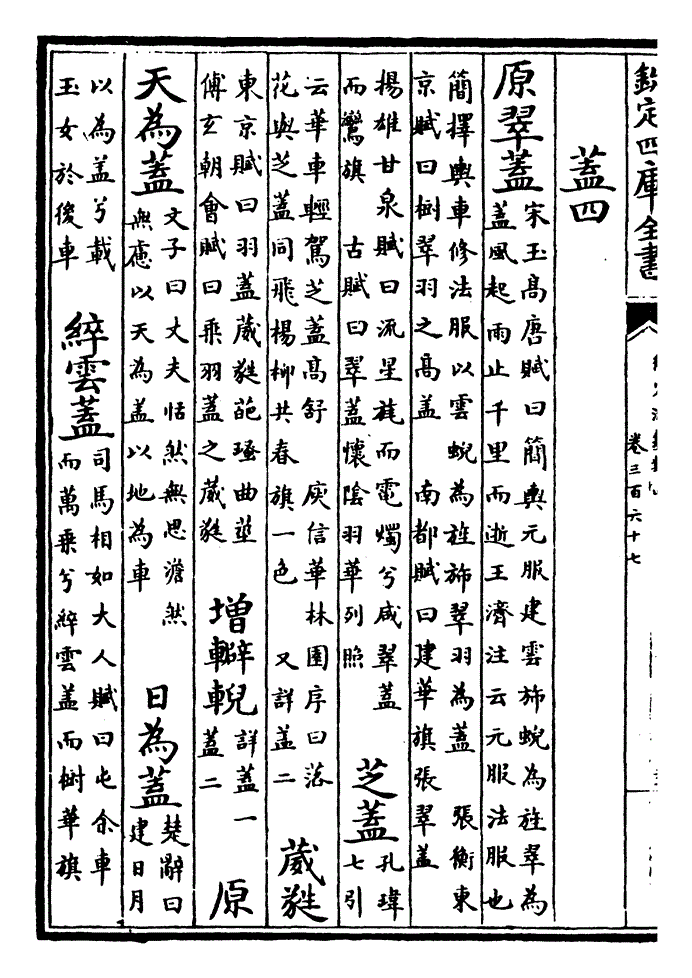 欽定四庫全書
卷三百六十七
蓋四
原翠蓋
宋玉高唐賦曰簡輿元服建雲斾蜺為旌翠為
蓋風起雨止千里而逝王濟注云元服法服也
簡擇輿車修法服以雲蜺為旌斾翠羽為蓋 張衡東
京賦曰樹翠羽之高蓋 南都賦曰建華旗張翠蓋
揚雄甘泉賦曰流星旄而電燭兮咸翠蓋
而鸞旗 古賦曰翠蓋懷陰羽華列照
芝蓋
孔瑋
七引
云華車輕駕芝蓋高舒 庾信華林園序曰落
花與芝蓋同飛楊柳共春旗一色 又詳蓋二
葳蕤
東京賦曰羽蓋葳蕤葩瑵曲莖
傅玄朝會賦曰乘羽蓋之葳蕤
增轓輗
詳蓋一
蓋二
原
天為蓋
文子曰丈夫恬然無思澹然
無慮以天為蓋以地為車
日為蓋
楚辭曰
建日月
以為蓋兮載
玉女於後車
綷雲蓋
司馬相如大人賦曰屯余車
而萬乘兮綷雲蓋而樹華旗